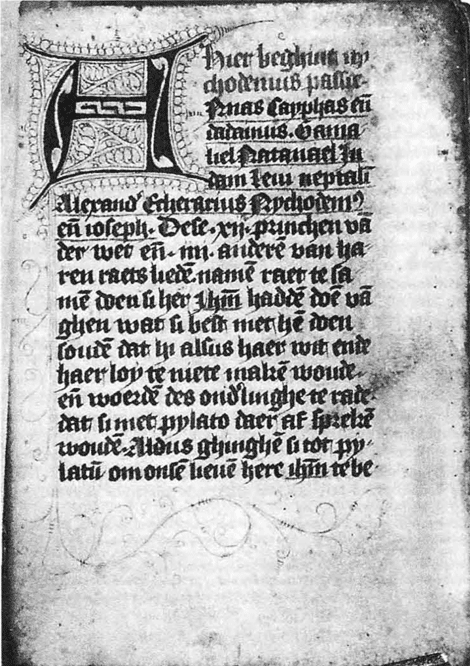 Hier beghint ny
chodemus passie.
Annas Cayphas eñ
dadamus. Gama
liel Natanael Ju
dam Leui neptali
Alexand' Etherarius Nychodem9
eñ ioseph. Dese .xij. princhen vā
der wet eñ .iiij. andere van ha
ren raets liedē. namē raet te sa
mē doen si her ihm̄ haddē doē vā
ghen wat si best met hē doen
soudē dat hi alsus haer wit ende
haer loy te niete makē woude.
eñ woerdē des ond'linghe te rade
dat si met pylato daer af sprekē
woudē. Aldus ghinghē si tot py
latū om onsē lieuē here ihm̄ te be